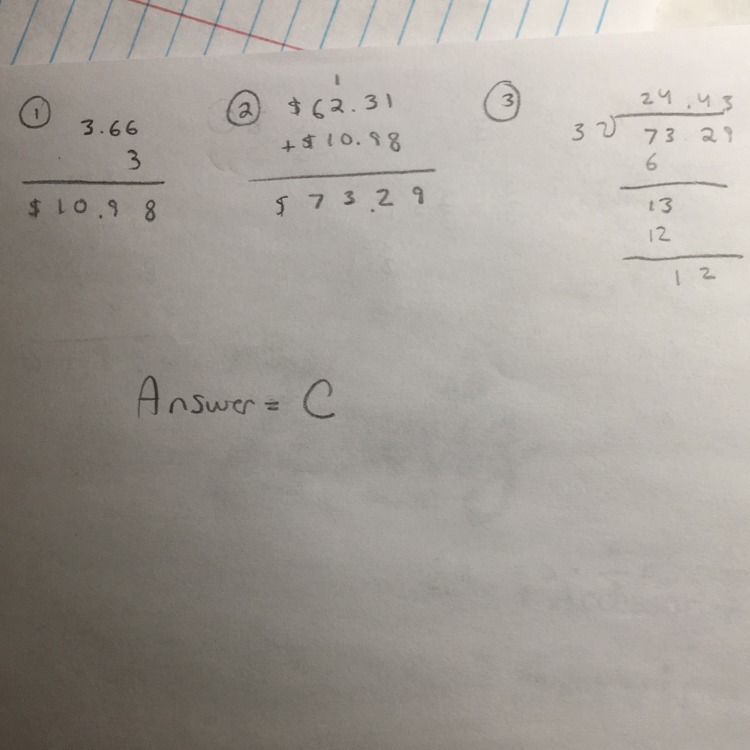 ① 3.66
3
$10.98
② 1
$62.31
+$10.98
$73.29
③ 24.43
3 73.29
6
13
12
12
Answer = C